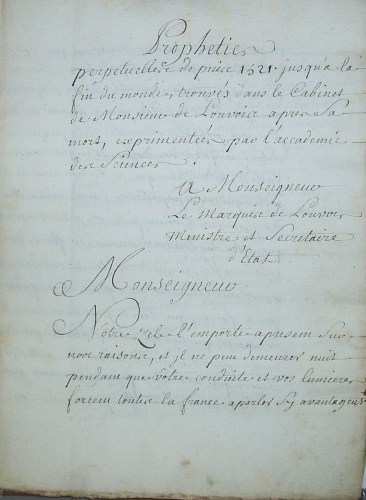 Propheties
perpetuelles depuis 1521. jusqu'a la
fin du monde, trouvés dans le Cabinet
de Monsieur de Louvois apres sa
mort, exprimentées par l'accademie
des Sciences.
A Monseigneur
Le Marquis de Louvois
Ministre et Secretaire
d'Etat.
Monseigneur
Nôtre zele l'emporte apresent sur
nos raisons, et je ne peu demeurer
pendant que vôtre conduitte et vos lumieres
forcent toutte la france a parler sy avantageus